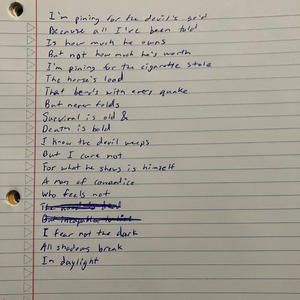 I'm pining for the devil's gold
Because all I've been told
Is how much he owns
But not how much he's worth
I'm pining for the cigarette stole
The horse's load
That bends with every quake
But never folds
Survival is old &
Death is bold
I know the devil weeps
But I care not
For what he shows is himself
A man of cowardice
Who feels not
I fear not the dark
All shadows break
In daylight